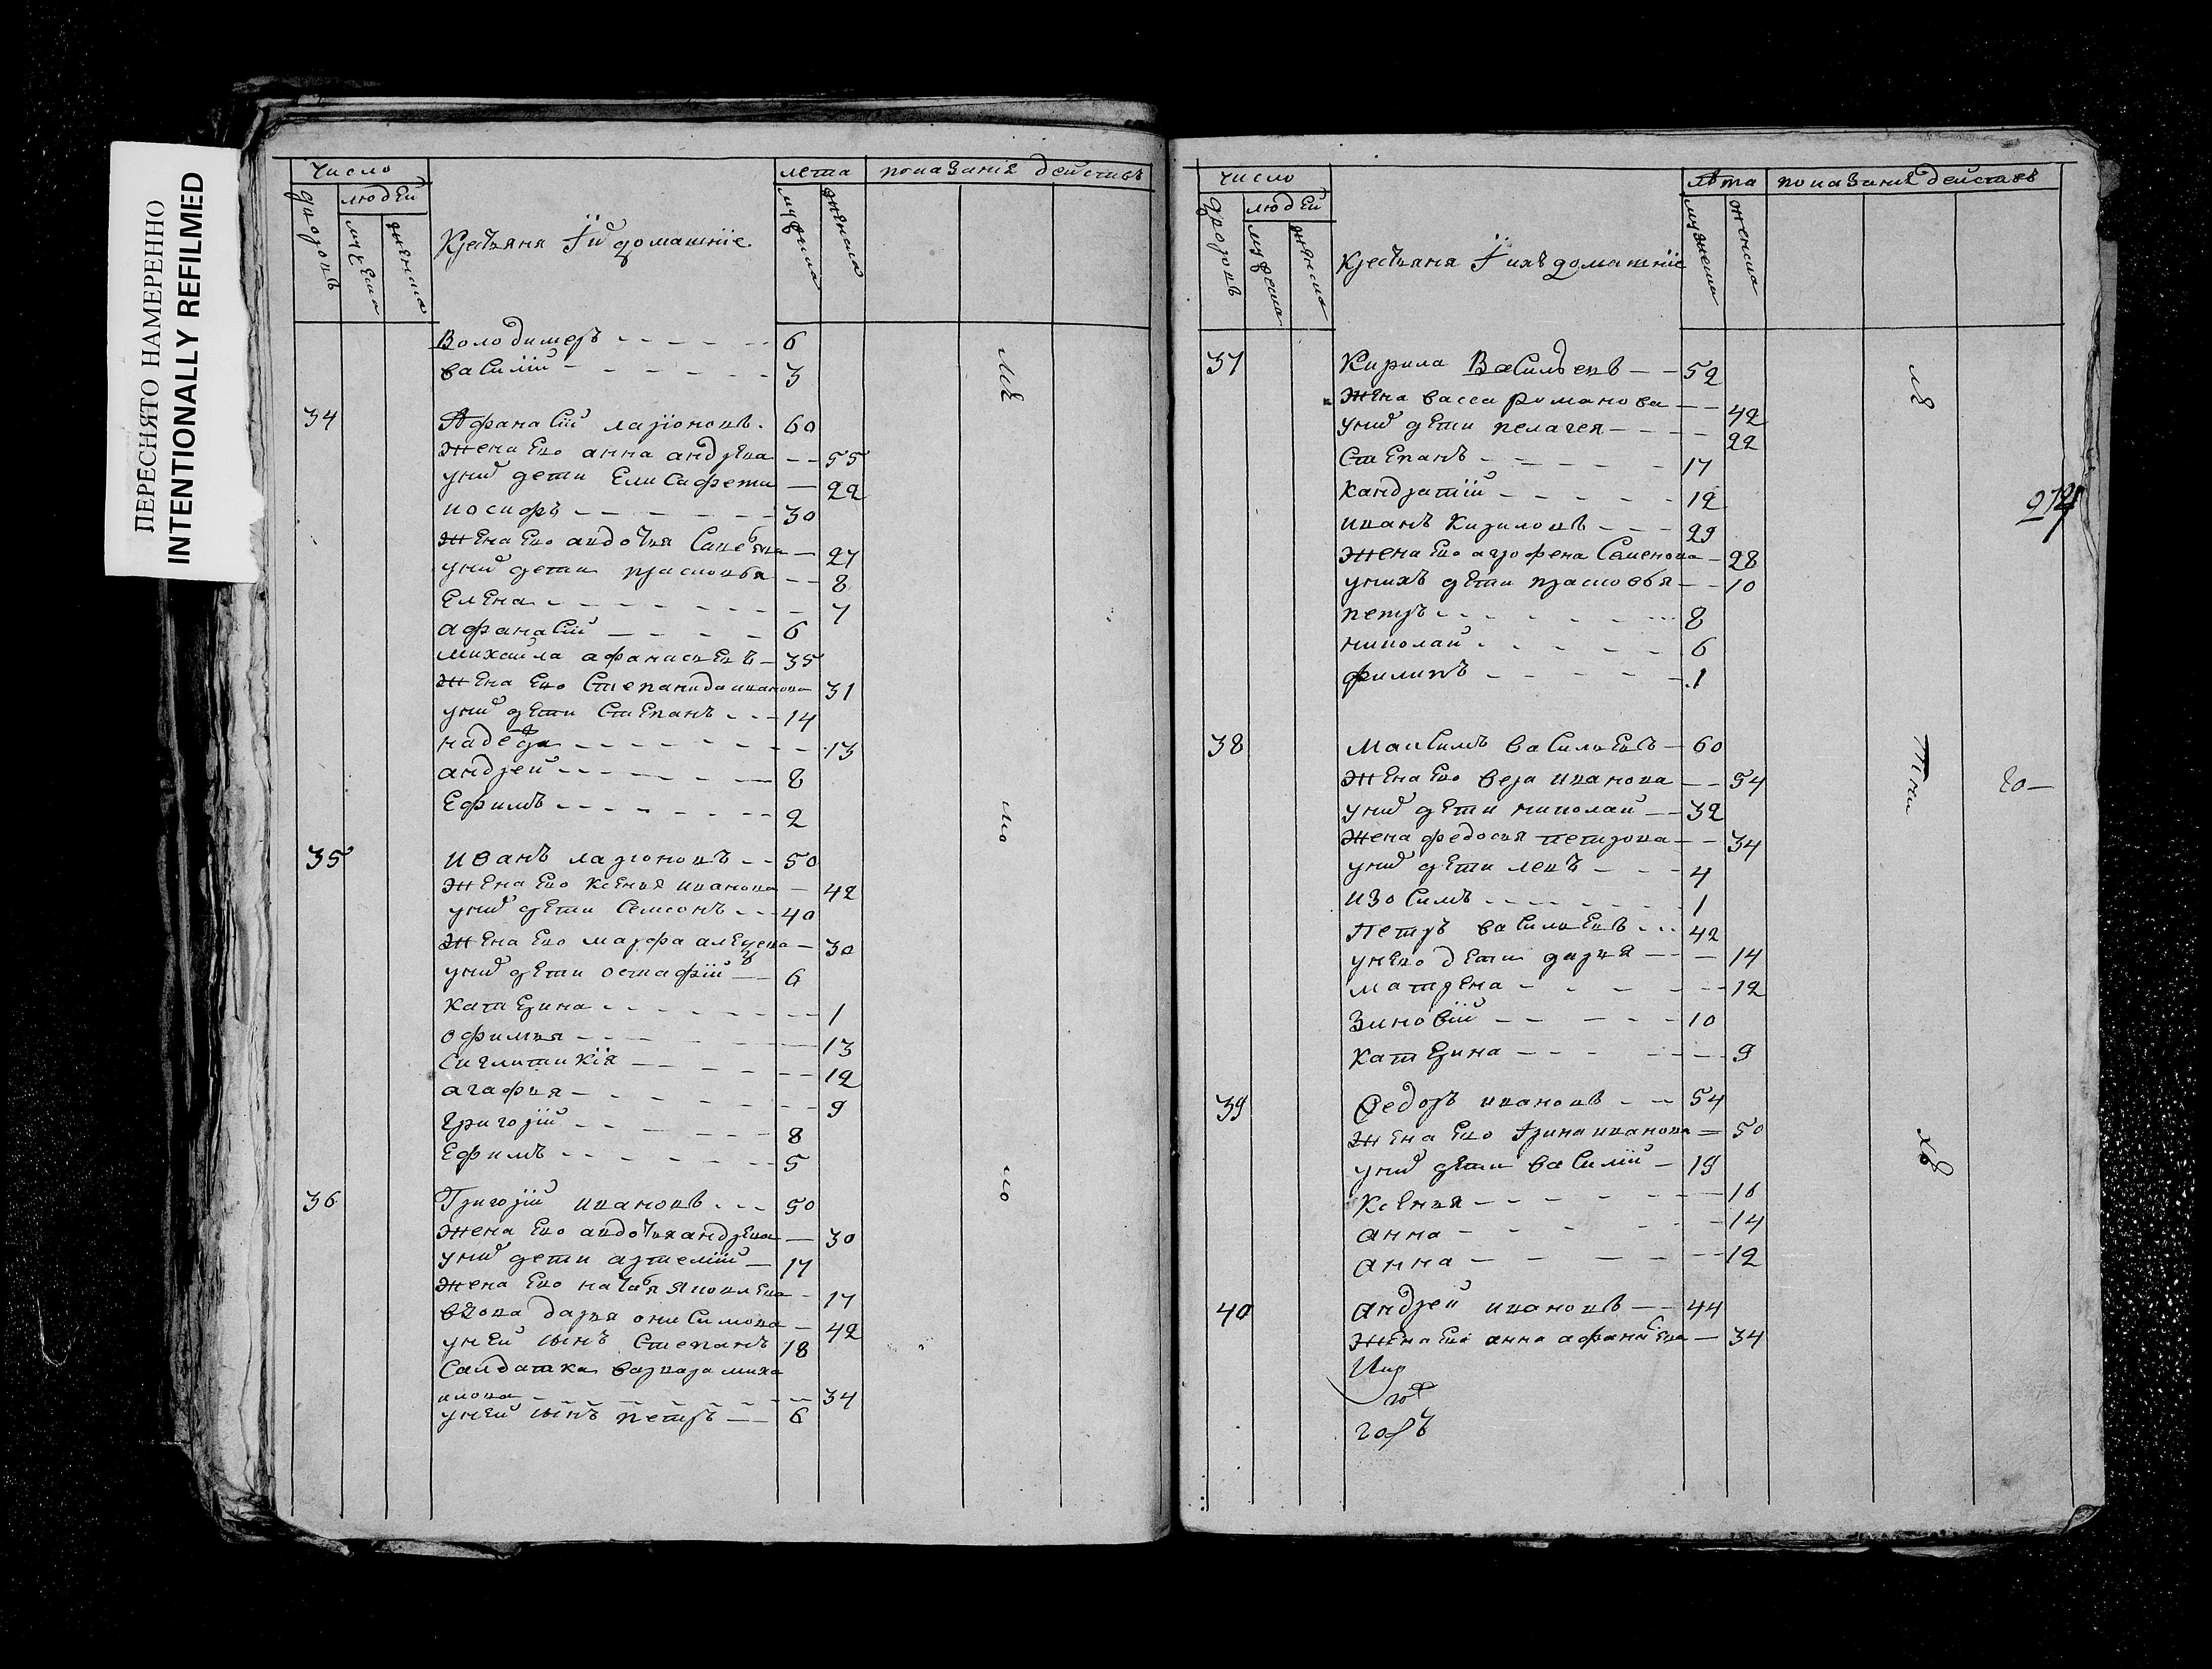 ПЕРЕСНЯТО НАМЕРЕННО
INTENTIONALLY REFILMED
число
людей
лета
показание действъ
дворовъ
мужеска
женска
мужеска
женска
Володимеръ 6
василий 3
34 Афанасій ларіоновъ 60
жена ево анна андрева 55
униⷯ дети Елисафета 22
иосифъ 30
жена ево авдотья 27
униⷯ дети прасковья 8
Елена 7
афанасій 6
михайла афанасьевъ 35
жена ево степанида иванова 31
униⷯ дети степанъ 14
надежда 13
андрей 8
Ефимъ 2
35 иванъ ларионовъ 50
жена ево ксенья иванова 42
униⷯ дети семионъ 40
жена ево марфа 30
униⷯ дети остафій 6
катерина 1
офимья 13
сиглитикїя 12
агафья 9
григорій 8
Ефимъ 5
36 Григорій ивановъ 50
жена ево авдотья андрева 30
униⷯ дети артемій 17
жена ево наталья яковлева 17
вдова дарья онисимова 42
уней сынъ степанъ 18
салдатка варвара миха
илова 34
уней сынъ петръ 6
число
людей
лѣта
показание действъ
дворовъ
мужеска
женска
крестьяня ихъ домашніе
мужеска
женска
274
37 Кирила Васильевъ 52
жена васса романова 42
униⷯ дети пелагея 22
степанъ 17
кандратій 12
иванъ кириловъ 29
жена ево агрофена семенова 28
унихъ дети прасковья 10
петръ 8
николай 6
филипъ 1
38 максимъ васильевъ 60
жена ево вера иванова 54
униⷯ дети николай 32
жена федосья петрова 34
униⷯ дети левъ 4
изосимъ 1
петръ васильевъ 42
унево дети дарья 14
матрена 12
зиновій 10
катерина 9
39 Федоръ ивановъ 54
жена ево ирина иванова 50
униⷯ дети василій 19
ксенья 16
анна 14
анна 12
40 андрей ивановъ 44
жена ево анна афанасьева 34